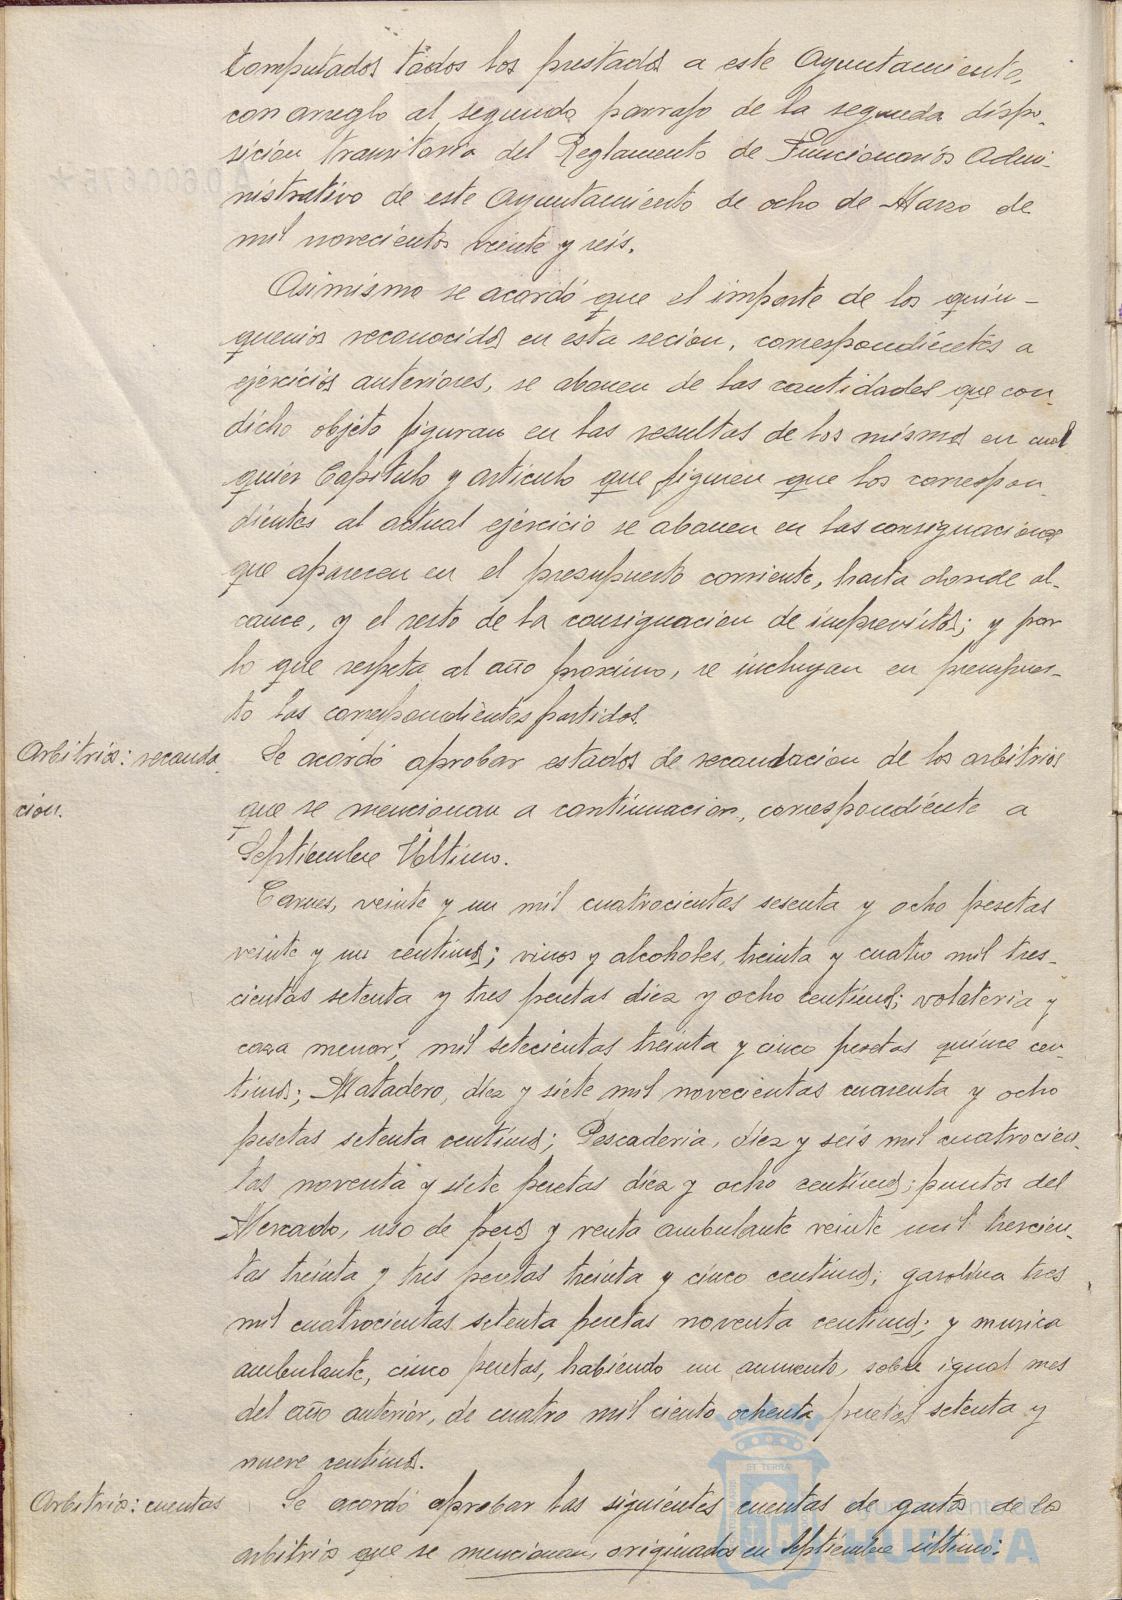 computados todos los prestados a este Ayuntamiento,
con arreglo al segundo parrafo de la segunda dispo-
sición transitoria del Reglamento de Funcionarios Admi-
nistrativo de este Ayuntamiento de ocho de Marzo de
mil novecientos veinte y seis.
Asimismo se acordó que el importe de los quin-
quenios reconocidos en esta seción, correspondientes a
ejercicios anteriores, se abonen de las cantidades que con
dicho objeto figuran en las resultas de los mismos en cual
quier Capitulo y articulo que figuren que los correspon-
dientes al actual ejercicio se abonen en las consignaciones
que aparecen en el presupuesto corriente, hasta donde al-
cance, y el resto de la consignación de imprevistos; y por
lo que respeta al año proximo, se incluyan en presupues-
to las correspondientes partidas.
Arbitrios: recauda
ción.
Se acordó aprobar estados de recaudacion de los arbitrios
que se mencionan a continuacion, correspondiente a
Septiembre Ultimo.
Carnes, veinte y un mil cuatrocientas sesenta y ocho pesetas
veinte y un centimos; vinos y alcoholes, treinta y cuatro mil tres-
cientas setenta y tres pesetas diez y ocho centimos; volateria y
caza menor; mil setecientas treinta y cinco pesetas quince cen-
timos; Matadero, diez y siete mil novecientas cuarenta y ocho
pesetas setenta centimos; Pescaderia, diez y seis mil cuatrocien-
tas noventa y siete pesetas diez y ocho centimos; puntos del
Mercado, uso de pesos y venta ambulante veinte mil trescien-
tas treinta y tres pesetas treinta y cinco centimos; gasolina tres
mil cuatrocientas setenta pesetas noventa centimos; y musica
ambulante, cinco pesetas, habiendo un aumento, sobre igual mes
del año anterior, de cuatro mil ciento ochenta pesetas setenta y
nueve centimos.
Arbitrios: cuentas
Se acordó aprobar las siguientes cuentas de gastos de los
arbitrios que se mencionan, originados en Septiembre último:
Ayuntamiento de
HUELVA